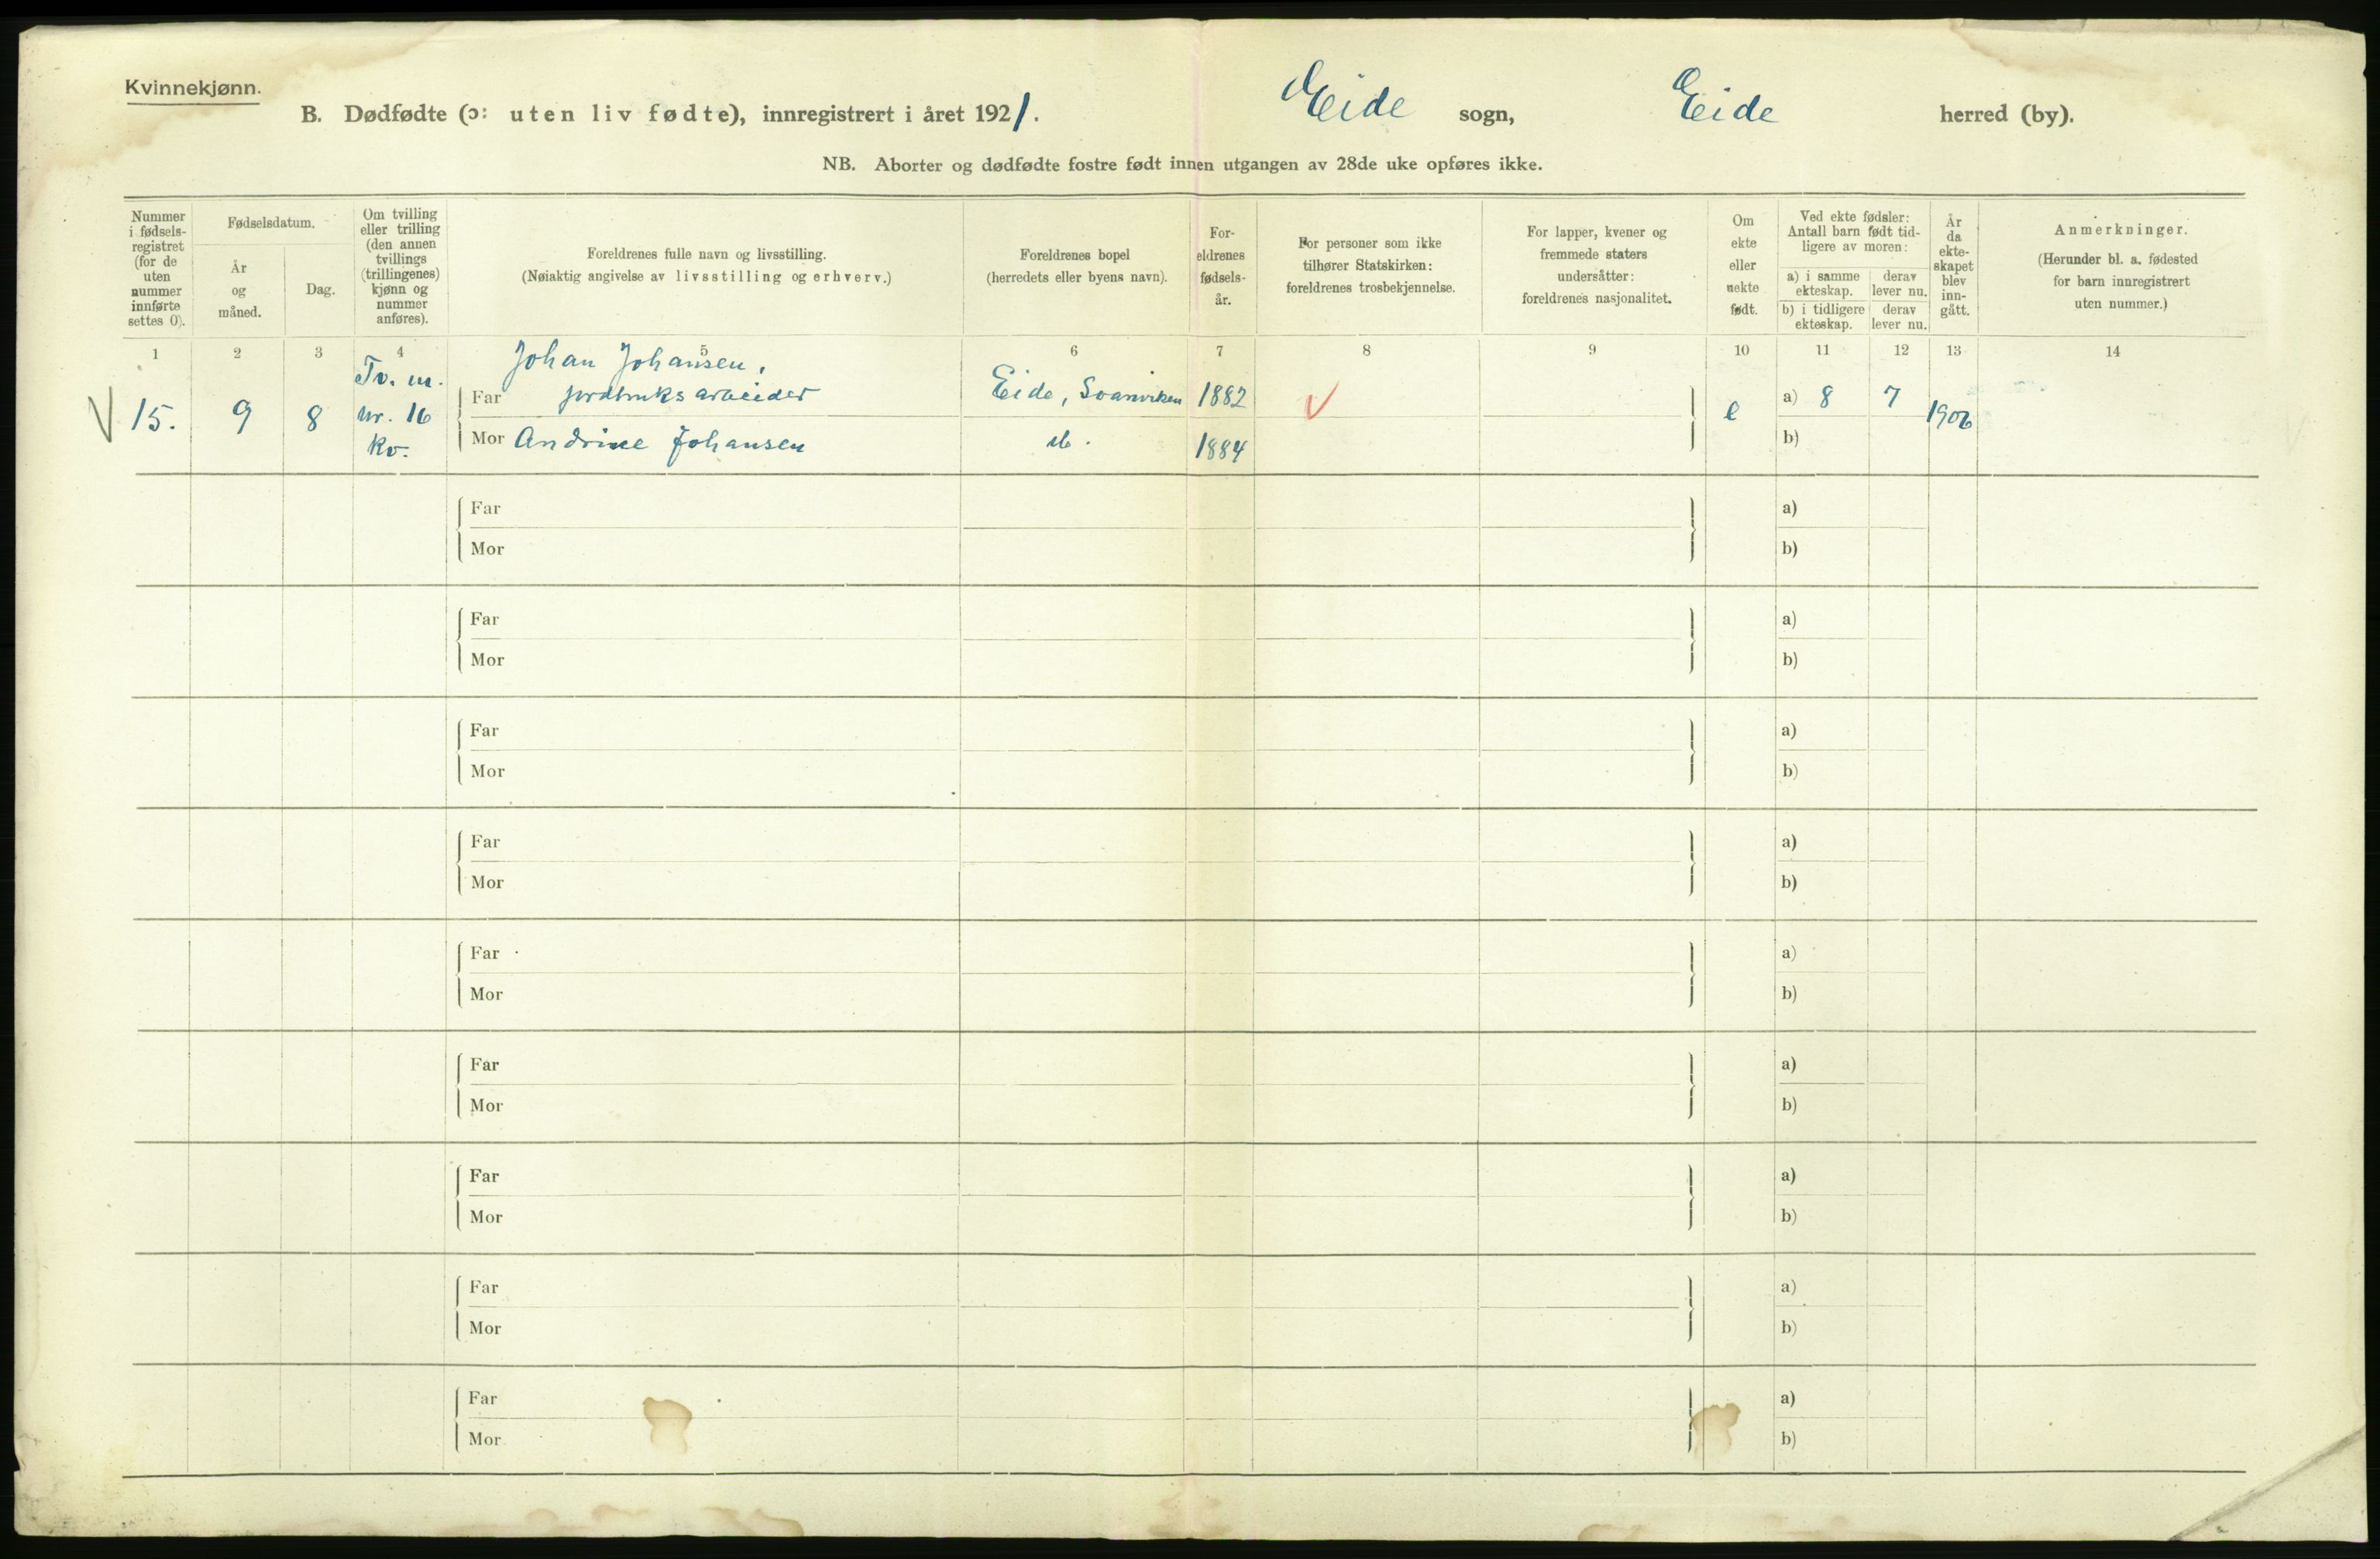 Kvinnekjønn.
B. Dødfødte (ɔ: uten liv fødte), innregistrert i året 1921. Eide sogn, Eide herred (by).
NB. Aborter og dødfødte fostre født innen utgangen av 28de uke opføres ikke.
Nummer
i fødsels-
registret
(for de
uten
nummer
innførte
settes 0).
Fødselsdatum.
År
og
måned.
Dag.
Om tvilling
eller trilling
(den annen
tvillings
(trillingenes)
kjønn og
nummer
anføres).
Foreldrenes fulle navn og livsstilling.
(Nøiaktig angivelse av livsstilling og erhverv.)
Foreldrenes bopel
(herredets eller byens navn).
For-
eldrenes
fødsels-
år.
For personer som ikke
tilhører Statskirken:
foreldrenes trosbekjennelse.
For lapper, kvener og
fremmede staters
undersåtter:
foreldrenes nasjonalitet.
Om
ekte
eller
uekte
født.
Ved ekte fødsler:
Antall barn født tid-
ligere av moren:
a) i samme
ekteskap.
derav
lever nu.
b) i tidligere
ekteskap.
derav
lever nu.
År
da
ekte-
skapet
blev
inn-
gått.
Anmerkninger.
(Herunder bl. a. fødested
for barn innregistrert
uten nummer.)
1 2 3 4 5 6 7 8 9 10 11 12 13 14
V 15. 9 8
Tv. m.
nr. 16
kv.
Johan Johansen,
Far jordbruksarbeider Eide, 1882 V e a) 8 7 1906
Mor Andrine Johansen d. 1884 b)
Far a)
Mor b)
Far a)
Mor b)
Far a)
Mor b)
Far a)
Mor b)
Far a)
Mor b)
Far a)
Mor b)
Far a)
Mor b)
Far a)
Mor b)
Far a)
Mor b)